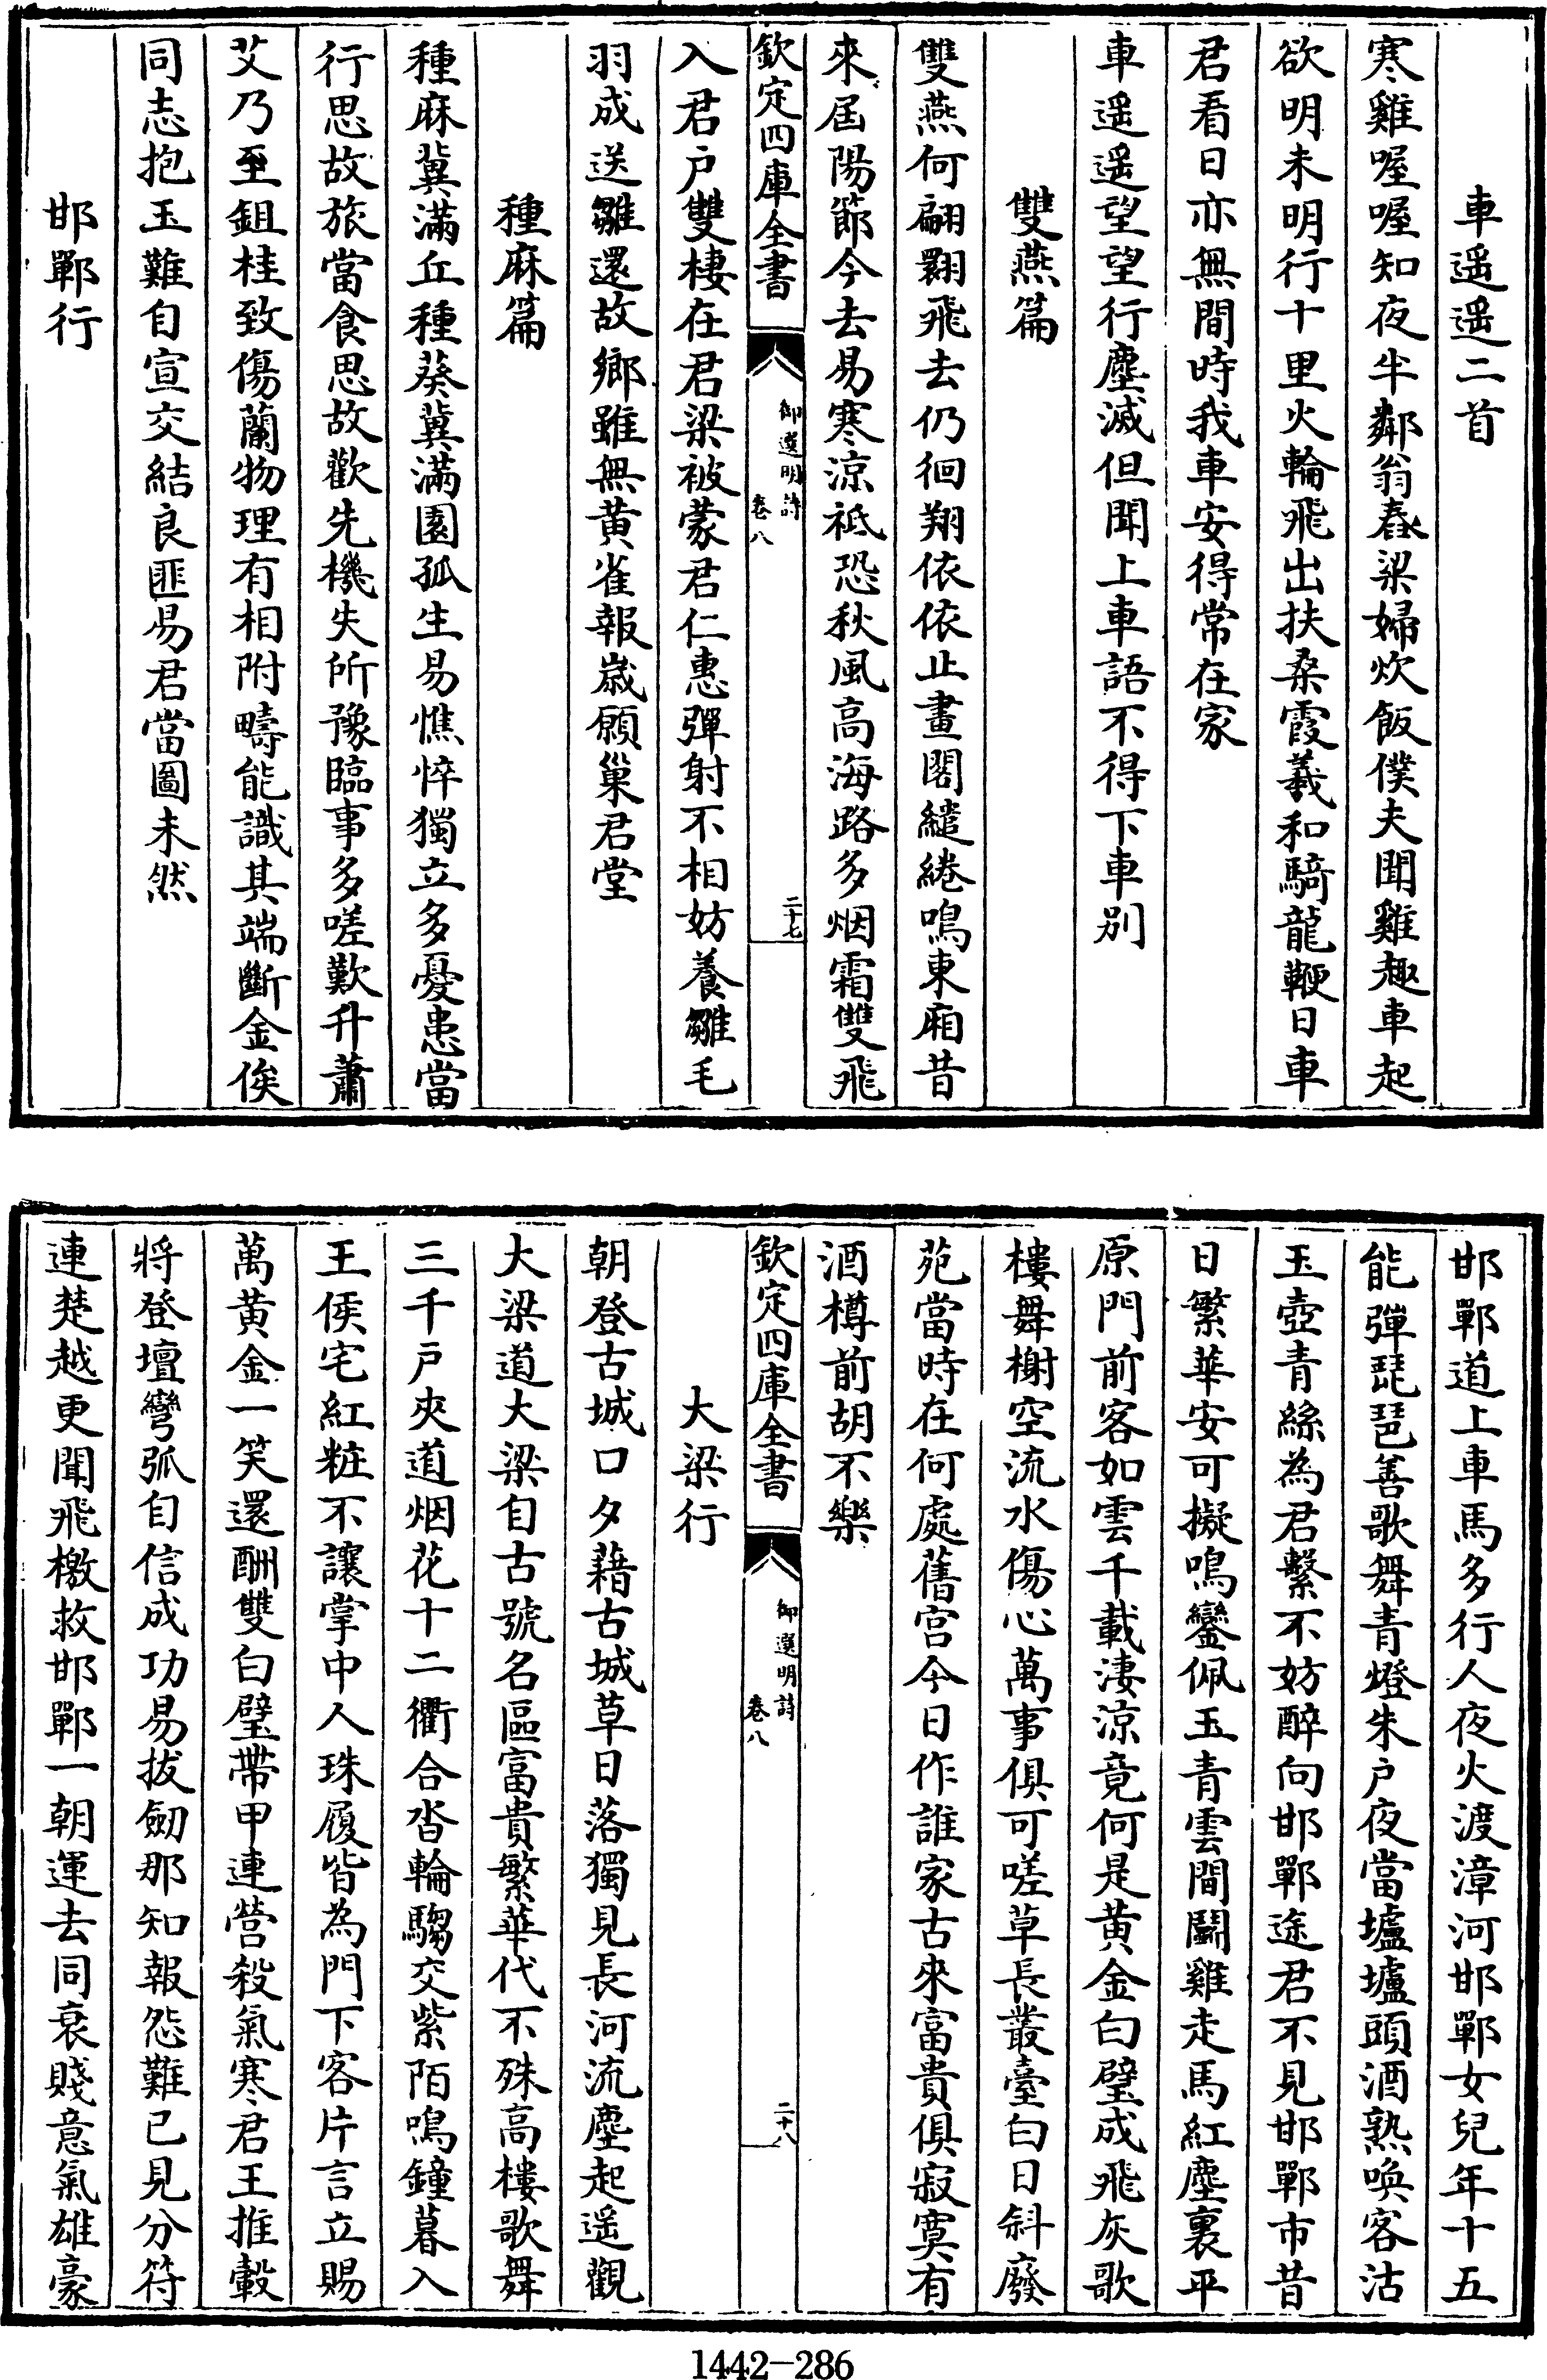 車遥遥二首
寒雞喔喔知夜半鄰翁舂粱婦炊飯僕夫聞雞趣車起
欲明未明行十里火輪飛出扶桑霞羲和騎龍鞭日車
君看日亦無間時我車安得常在家
車遥遥望望行塵滅但聞上車語不得下車別
雙燕篇
雙燕何翩翾飛去仍徊翔依依止畫閣繾綣鳴東廂昔
來屆陽節今去易寒涼祗恐秋風高海路多烟霜雙飛
欽定四庫全書
御選明詩
卷八
二十七
入君户雙棲在君梁被蒙君仁惠彈射不相妨養雛毛
羽成送雛還故鄉雖無黄雀報歲願巢君堂
種麻篇
種麻冀滿丘種葵冀滿園孤生易憔悴獨立多憂患當
行思故旅當食思故歡先機失所豫臨事多嗟歎升蕭
艾乃至鉏桂致傷蘭物理有相附疇能識其端斷金俟
同志抱玉難自宣交結良匪易君當圖未然
邯鄲行
邯鄲道上車馬多行人夜火渡漳河邯鄲女兒年十五
能彈琵琶善歌舞青燈朱户夜當壚壚頭酒熟喚客沽
玉壺青絲為君繫不妨醉向邯鄲途君不見邯鄲市昔
日繁華安可擬鳴鑾佩玉青雲間鬭雞走馬紅塵裏平
原門前客如雲千載淒涼竟何是黄金白璧成飛灰歌
樓舞榭空流水傷心萬事俱可嗟草長叢臺白日斜廢
苑當時在何處舊宫今日作誰家古來富貴俱寂寞有
酒樽前胡不樂
欽定四庫全書
御選明詩
卷八
二十八
大梁行
朝登古城口夕藉古城草日落獨見長河流塵起遥觀
大梁道大梁自古號名區富貴繁華代不殊高樓歌舞
三千户夾道烟花十二衢合沓輪騶交紫陌鳴鐘暮入
王侯宅紅粧不讓掌中人珠履皆為門下客片言立賜
萬黄金一笑還酬雙白璧帶甲連營殺氣寒君王推轂
將登壇彎弧自信成功易拔劒那知報怨難已見分符
連楚越更聞飛檄救邯鄲一朝運去同衰賤意氣雄豪
1442-286